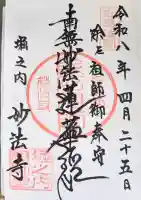 令和八年四月二十五日
除厄祖師御奉守
南無妙法蓮華経
堀之内
妙法寺